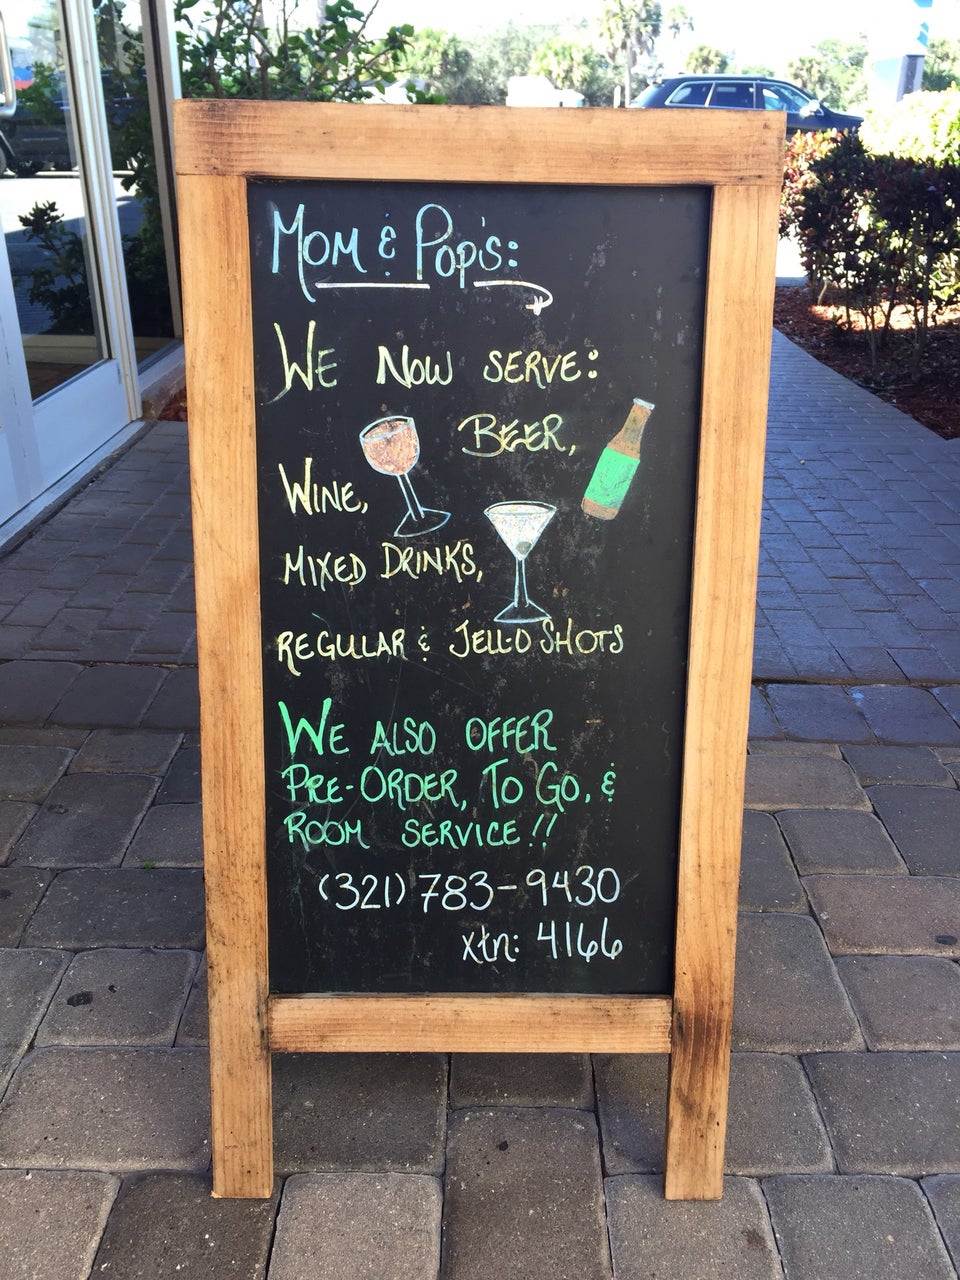 Mom & Pop's:
We Now Serve:
Beer,
Wine,
Mixed Drinks,
Regular & Jell-O Shots
We also offer
Pre-Order, To Go, &
Room Service!!
(321) 783-9430
xtn: 4166